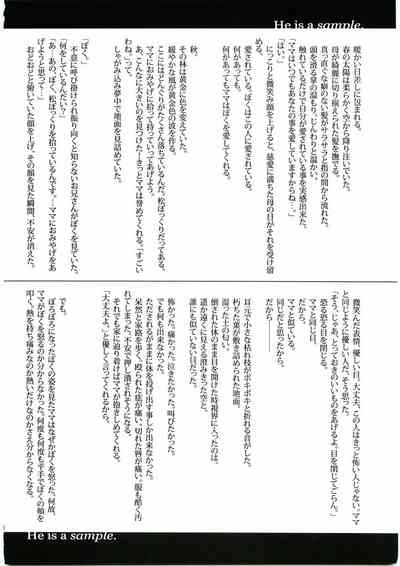 He is a sample.
暖かい日差しに包まれる。
春の太陽は柔らかく空から降り注いでいた。
母が綺麗に切り揃えられた髪を撫でる。
真っ直ぐな癖のない髪がサラサラと指の間から流れた。
頭を滑る掌の温もり。じんわりと温かい。
触れているだけで自分が愛されている事を実感出来た。
「ママはいつでもあなたの事を愛していますからね…。」
「はい。」
にっこりと微笑み顔を上げると、慈愛に満ちた母の目がそれを受け留めた。
愛されている。ぼくはこの人に愛されている。
何があってもママはぼくを愛してくれる。
秋。
その林は黄金に色を変えていた。
緩やかな風が黄金色の波を作る。
ここにはどんぐりがたくさん落ちているんだ。松ぼっくりだってある。
ママにおみやげに拾って持っていってあげよう。
あ、こんなに大きいのを見つけた！きっとママは誉めてくれる。「すごいわね。」って。
しゃがみ込み夢中で地面を見詰めていた。
「ぼく。」
不意に呼び掛けられ振り向くと知らないお兄さんがぼくを見ていた。
「何をしているんだい？」
「あ…あの。ぼく、松ぼっくりを拾っているんです…。ママにおみやげをあげようと思って…。」
おどおどと俯いていた顔を上げ、その顔を見た瞬間、不安が消えた。
微笑んだ表情。優しい目。大丈夫。この人はきっと怖い人じゃない。ママと同じように優しい人だ。そう思った。
「そう。じゃあ、とっておきのいいものをあげるよ。目を閉じてごらん。」
恐る恐る目を閉じる。
ママと同じ目。
ママと似ている。
同じだと思ったから。
だから。
耳元で小さな枯れ枝がポキポキと折れる音がした。
朽ちた葉が敷き詰められた地面。
湿った土の匂い。
倒された体のまま目を開けた時視界に入ったのは、
遥か遠くに見える澄みきった空と、
誰にも似ていない目だった。
怖かった。痛かった。泣きたかった。叫びたかった。
でも何も出来なかった。
ただされるがままに体を投げ出す事しか出来なかった。
呆然と家路を歩く。殴られた痣が痛い。切れた唇が痛い。服も酷く汚れてしまった。不安で心が押し潰されそうになる。
それでも家に辿り着けばママが抱きしめてくれる。
「大丈夫よ。」と優しく言ってくれるから。
でも。
ぼろぼろになったぼくの姿を見たママはなぜかぼくを怒った。何故、ママがぼくを怒るのか分からなかった。何度も何度も平手でぼくの頬を叩く。熱を持ち痛みなのか熱いだけなのかさえ分からなくなる。
He is a sample.